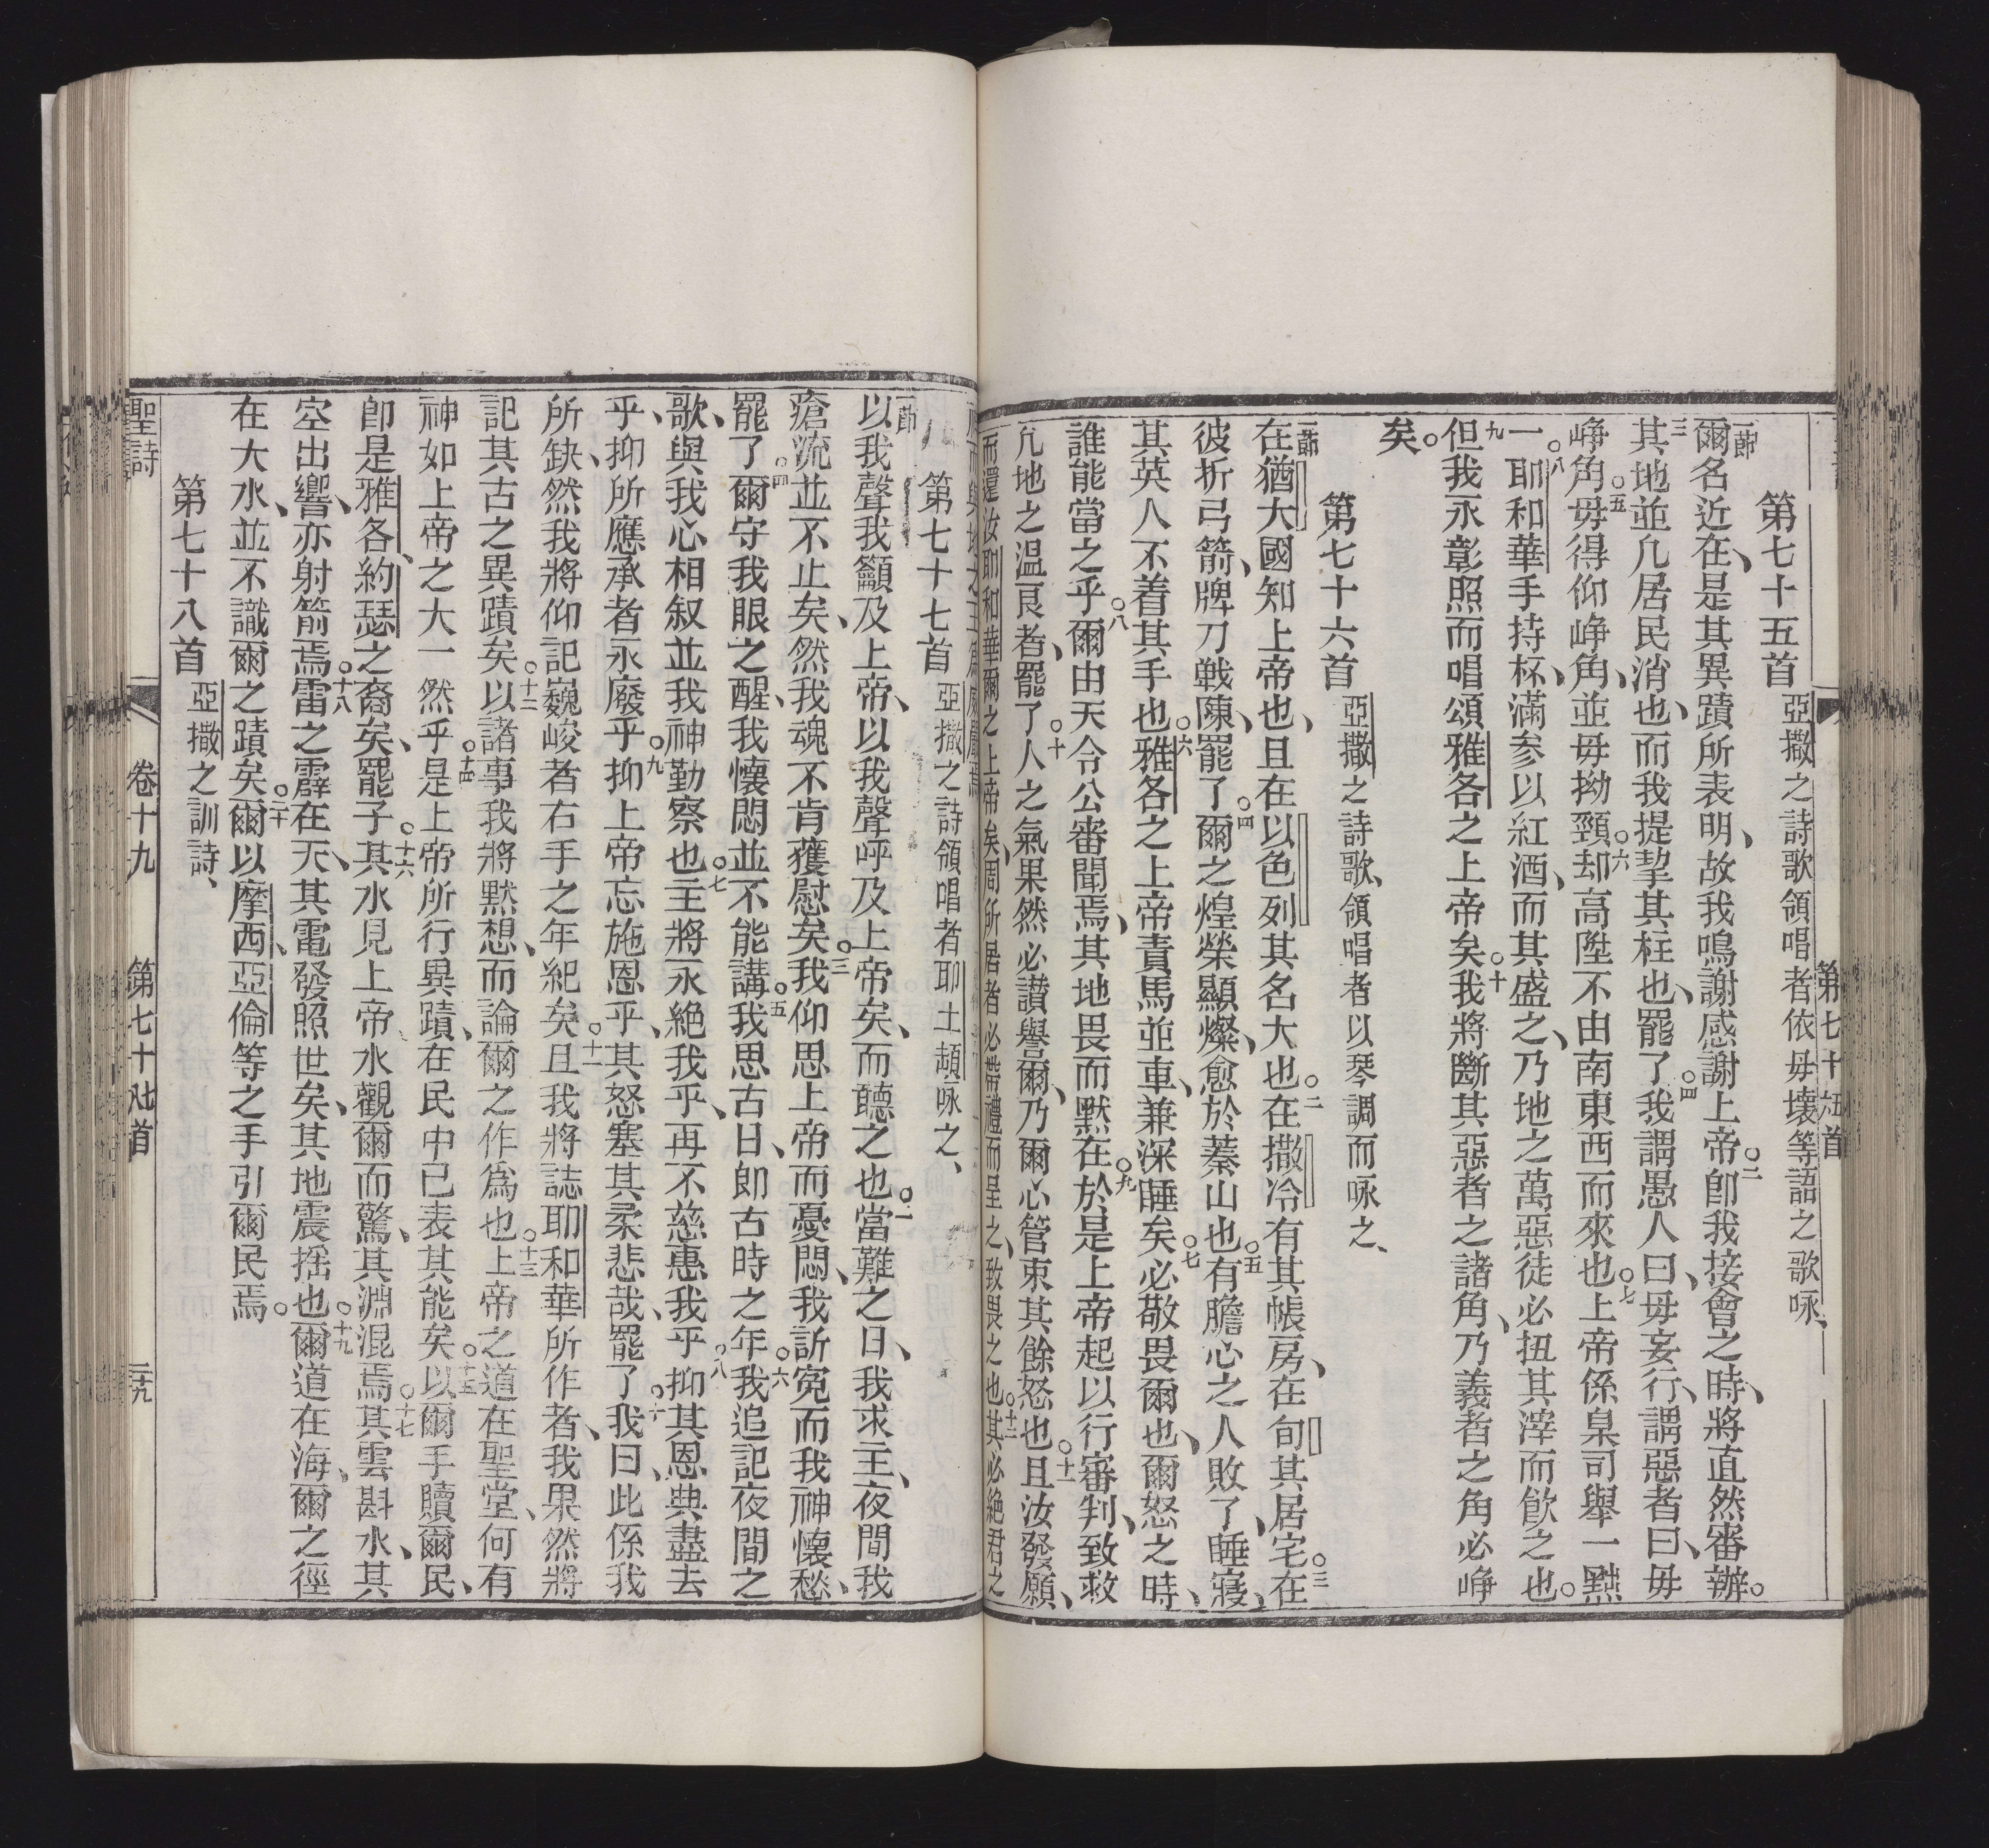 第七十五首
第七十五首 亞撒之詩歌領唱者依毋壞等語之歌咏、
一節爾名近在、是其異蹟所表明、故我鳴謝感謝上帝○二卽我接會之時、將直然審辦。
三其地並凡居民消也、而我提挈其柱也、罷了○四我謂愚人曰、毋妄行、謂惡者曰、毋
崢角○五毋得仰崢角、並毋拗頸○六却高陞不由南東西而來也○七上帝係臬司舉一黜
一○八耶和華手持杯、滿参以紅酒、而其盛之、乃地之萬惡徒必扭其滓而飮之也。
九但我永彰照而唱頌雅各之上帝矣○十我將斷其惡者之諸角、乃義者之角必崢
矣。
第七十六首 亞撒之詩歌、領唱者以琴調而咏之、
一節在猶大國知上帝也、且在以色列其名大也○二在撒冷有其帳房、在旬其居宅○三在
彼折弓箭、牌刀戰陳、罷了○四爾之煌榮顯燦、愈於蓁山也○五有膽心之人敗了、睡寢、
其英人不着其手也○六雅各之上帝責馬並車、兼深睡矣○七必敬畏爾也、爾怒之時、
誰能當之乎○八爾由天令公審聞焉、其地畏而默在○九於是上帝起以行審判、致救
凡地之温良者、罷了○十人之氣果然必讃譽爾、乃爾必管束其餘怒也○十一且汝發願、
而還汝耶和華爾之上帝矣、周所居者必帶禮而呈之、致畏之也○十二其必絕君之
第七十七首 亞撒之詩領唱者耶土頡咏之、
一節以我聲我籲及上帝、以我聲呼及上帝矣、而聽之也○二當難之日、我求主、夜間我
瘡流並不止矣、然我魂不肯獲慰矣○三我仰思上帝而憂悶、我訢寃而我神懷愁、
罷了○四爾守我眼之醒、我懷悶並不能講○五我思古日、卽古時之年○六我追記夜間之
歌、與我心相叙並我神勤察也○七主將永絕我乎、再不慈惠我乎○八抑其恩典盡去
乎、抑所應承者永廢乎○九抑上帝忘施恩乎、其怒塞其柔悲哉、罷了○十我曰、此係我
所缺、然我將仰記巍峻者右手之年紀矣○十一且我將誌耶和華所作者、我果然將
記其古之異蹟矣○十二以諸事我將黙想、而論爾之作爲也○十三上帝之道在聖堂、何有
神如上帝之大一然乎○十四是上帝所行異蹟、在民中已表其能矣○十五以爾手贖爾民、
卽是雅各、約瑟之裔矣、罷子○十六其水見上帝水觀爾而驚、其淵混焉○十七其雲斟水、其
空出響、亦射箭焉○十八雷之霹在天、其電發照世矣、其地震揺也○十九爾道在海、爾之徑
在大水、並不識爾之蹟矣○二十爾以摩西、亞倫等之手引爾民焉。
第七十八首 亞撒之訓詩、
聖詩 卷十九 第七十 首 二十九